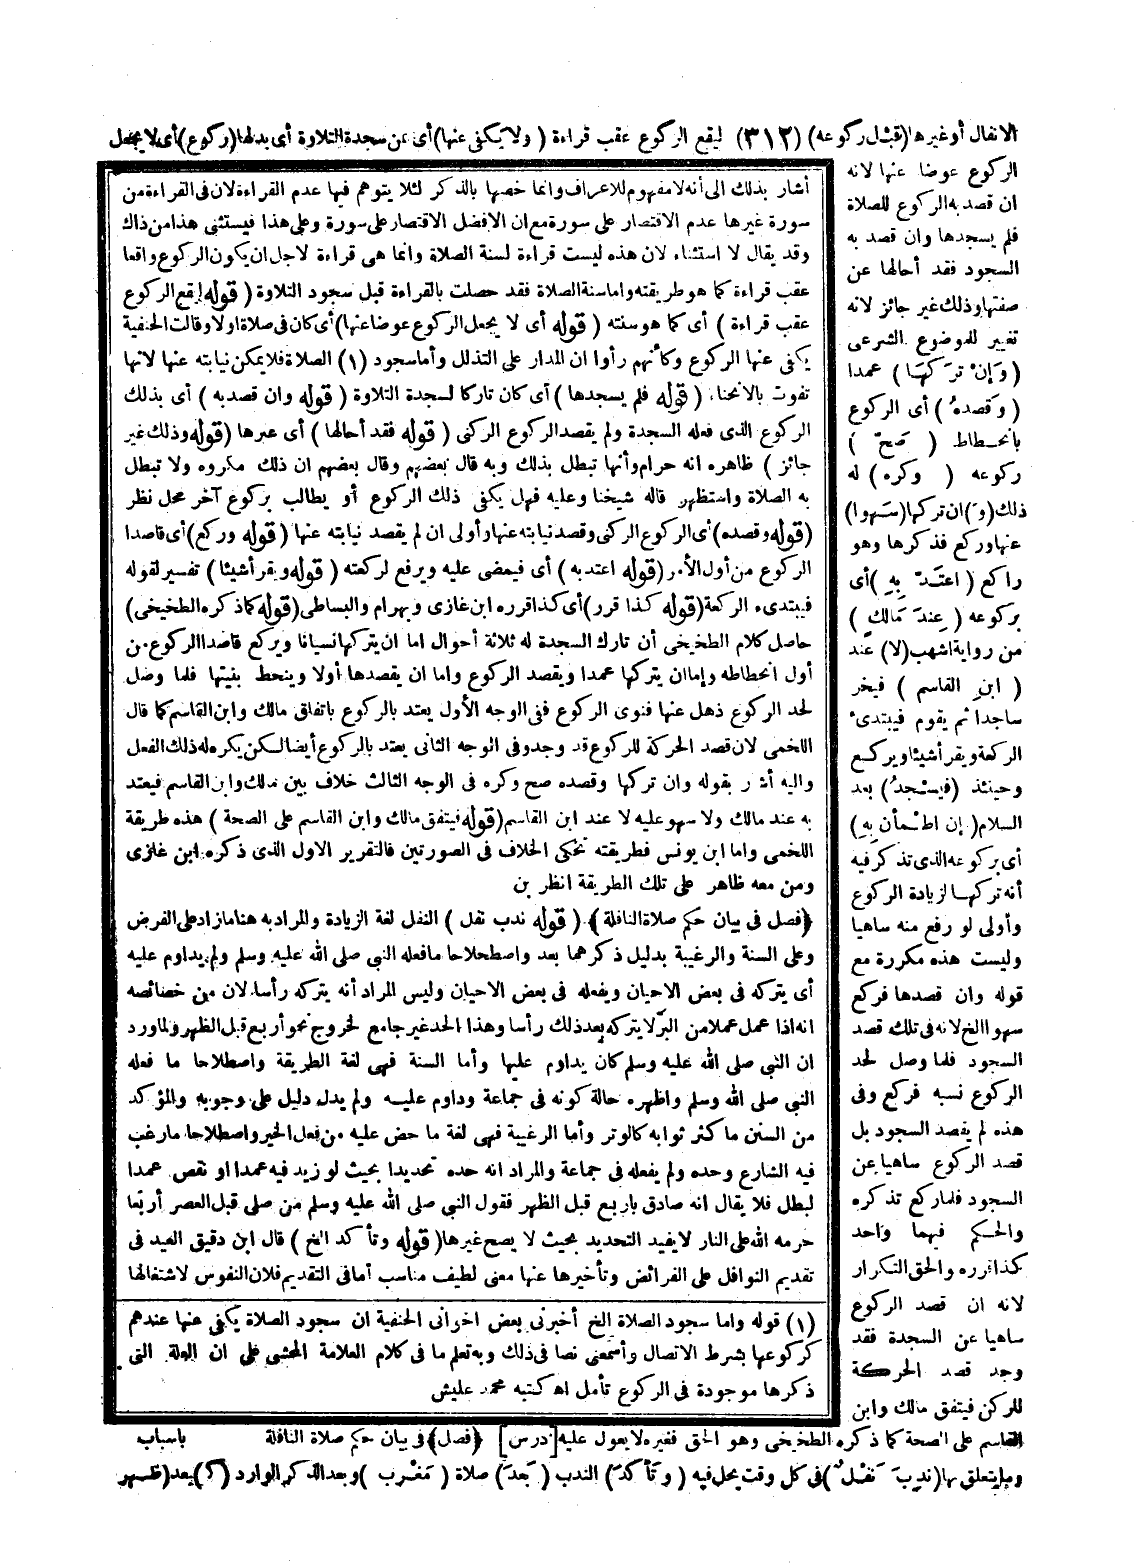 الانفال أوغيرها (قبل ركوعه) (٣١٢) ليقع الركوع عقب قراءة (ولا يكفى عنها) أى عن سجدة التلاوة أى بدلها (ركوع) أى لا يجعل
الركوع عوضا عنها لانه
ان قصد به الركوع للصلاة
فلم يسجدها وان قصد به
السجود فقد أحالها عن
صفتها وذلك غير جائز لانه
تغيير للموضوع الشرعى
(وَإِنْ تَرَكَهَا) عمدا
(وَقَصَدَهُ) أى الركوع
بانحطاطه (صَحَّ)
ركوعه (وكره) له
ذلك (وَ) ان تركها (سَهْوا)
عنها وركع فذكرها وهو
راكع (اعتَدَّ بِهِ) أى
بركوعه (عِندَ مَالكٍ)
من رواية اشهب (لا) عند
(ابنِ القاسم) فيخر
ساجدا ثم يقوم فيبتدىء
الركعة ويقرأ شيئا ويركع
وحينئذ (فيَسْجدُ) بعد
السلام (إن اطْمأن بِهِ)
أى بركوعه الذى تذكر فيه
أنه تركها لزيادة الركوع
وأولى لو رفع منه ساهيا
وليست هذه مكررة مع
قوله وان قصدها فركع
سهوا الخ لانه فى تلك قصد
السجود فلما وصل لحد
الركوع نسبه فركع وفى
هذه لم يقصد السجود بل
قصد الركوع ساهيا عن
السجود فلما ركع تذكره
والحكم فيهما واحد
كذا قرره والحق التكرار
لانه ان قصد الركوع
ساهيا عن السجدة فقد
وجد قصد الحركة
للركن فيتفق مالك وابن
القاسم على الصحة كما ذكره الطخيخى وهو الحق فغيره لا يعول عليه [درس] ﴿فصل﴾ فى بيان حكم صلاة النافلة باسباب
وما يتعلق بها (نُدِبَ نَفْلٌ) فى كل وقت يحل فيه (وَتَأكدَ) الندب (بَعدَ) صلاة (مَغْربٍ) وبعد الذكر الوارد (كـ) بعد (ظهر
أشار بذلك الى أنه لا مفهوم للاعراف وانما خصها بالذكر لئلا يتوهم فيها عدم القراءة لان فى القراءة من
سورة غيرها عدم الاقتصار على سورة مع ان الافضل الاقتصار على سورة وعلى هذا فيستثنى هذا من ذاك
وقد يقال لا استثناء لان هذه ليست قراءة لسنة الصلاة وانما هى قراءة لاجل ان يكون الركوع واقعا
عقب قراءة كما هو طريقته واما سنة الصلاة فقد حصلت بالقراءة قبل سجود التلاوة (قوله ليقع الركوع
عقب قراءة) أى كما هو سنته (قوله أى لا يجعل الركوع عوضا عنها) أى كان فى صلاة اولا وقالت الحنفية
يكفى عنها الركوع وكأنهم رأوا ان المدار على التذلل وأما سجود (١) الصلاة فلا يمكن نيابته عنها لانها
تفوت بالانحناء (قوله فلم يسجدها) أى كان تاركا لسجدة التلاوة (قوله وان قصد به) أى بذلك
الركوع الذى فعله السجدة ولم يقصد الركوع الركنى (قوله فقد أحالها) أى غيرها (قوله وذلك غير
جائز) ظاهره انه حرام وأنها تبطل بذلك وبه قال بعضهم وقال بعضهم ان ذلك مكروه ولا تبطل
به الصلاة واستظهر قاله شيخنا وعليه فهل يكفى ذلك الركوع أو يطالب بركوع آخر محل نظر
(قوله وقصده) أى الركوع الركنى وقصد نيابته عنها وأولى ان لم يقصد نيابته عنها (قوله وركع) أى قاصدا
الركوع من أول الأمر (قوله اعتد به) أى فيمضى عليه ويرفع لركعته (قوله ويقرأ شيئا) تفسير لقوله
فيبتدىء الركعة (قوله كذا قرر) أى كذا قرره ابن غازى وبهرام والبساطى (قوله كما ذكره الطخيخى)
حاصل كلام الطخيخى أن تارك السجدة له ثلاثة أحوال اما ان يتركها نسيانا ويركع قاصدا الركوع من
أول انحطاطه وإما ان يتركها عمدا ويقصد الركوع واما ان يقصدها أولا وينحط بنيتها فلما وصل
لحد الركوع ذهل عنها فنوى الركوع ففى الوجه الأول يعتد بالركوع باتفاق مالك وابن القاسم كما قال
اللخمى لان قصد الحركة للركوع قد وجد وفى الوجه الثانى يعتد بالركوع أيضا لكن يكره له ذلك الفعل
واليه أشار بقوله وان تركها وقصده صح وكره فى الوجه الثالث خلاف بين مالك وابن القاسم فيعتد
به عند مالك ولا سهو عليه لا عند ابن القاسم (قوله فيتفق مالك وابن القاسم على الصحة) هذه طريقة
اللخمى واما ابن يونس فطريقته تحكى الخلاف فى الصورتين فالتقرير الاول الذى ذكره ابن غازى
ومن معه ظاهر على تلك الطريقة انظر بن
﴿فصل فى بيان حكم صلاة النافلة﴾ (قوله ندب نفل) النفل لغة الزيادة والمراد به هنا ما زاد على الفرض
وعلى السنة والرغيبة بدليل ذكرهما بعد واصطلاحا ما فعله النبى صلى الله عليه وسلم ولم يداوم عليه
أى يتركه فى بعض الاحيان ويفعله فى بعض الاحيان وليس المراد أنه يتركه رأسا لان من خصائصه
انه اذا عمل عملا من البرّ لا يتركه بعد ذلك رأسا وهذا الحد غير جامع لخروج نحو أربع قبل الظهر ولما ورد
ان النبى صلى الله عليه وسلم كان يداوم عليها وأما السنة فهى لغة الطريقة واصطلاحا ما فعله
النبى صلى الله وسلم واظهره حالة كونه فى جماعة وداوم عليه ولم يدل دليل على وجوبه والمؤكد
من السنن ما كثر ثوابه كالوتر وأما الرغيبة فهى لغة ما حض عليه من فعل الخير واصطلاحا ما رغب
فيه الشارع وحده ولم يفعله فى جماعة والمراد انه حده تحديدا بحيث لو زيد فيه عمدا او نقص عمدا
لبطل فلا يقال انه صادق باربع قبل الظهر فقول النبى صلى الله عليه وسلم من صلى قبل العصر أربعا
حرمه الله على النار لا يفيد التحديد بحيث لا يصح غيرها (قوله وتأكد الخ) قال ابن دقيق العيد فى
تقديم النوافل على الفرائض وتأخيرها عنها معنى لطيف مناسب أما فى التقديم فلان النفوس لاشتغالها
(١) قوله واما سجود الصلاة الخ أخبرنى بعض اخوانى الحنفية ان سجود الصلاة يكفى عنها عندهم
كركوعها بشرط الاتصال وأسمعنى نصا فى ذلك وبه تعلم ما فى كلام العلامة المحشى على ان العلة التى
ذكرها موجودة فى الركوع تأمل اه كتبه محمد عليش